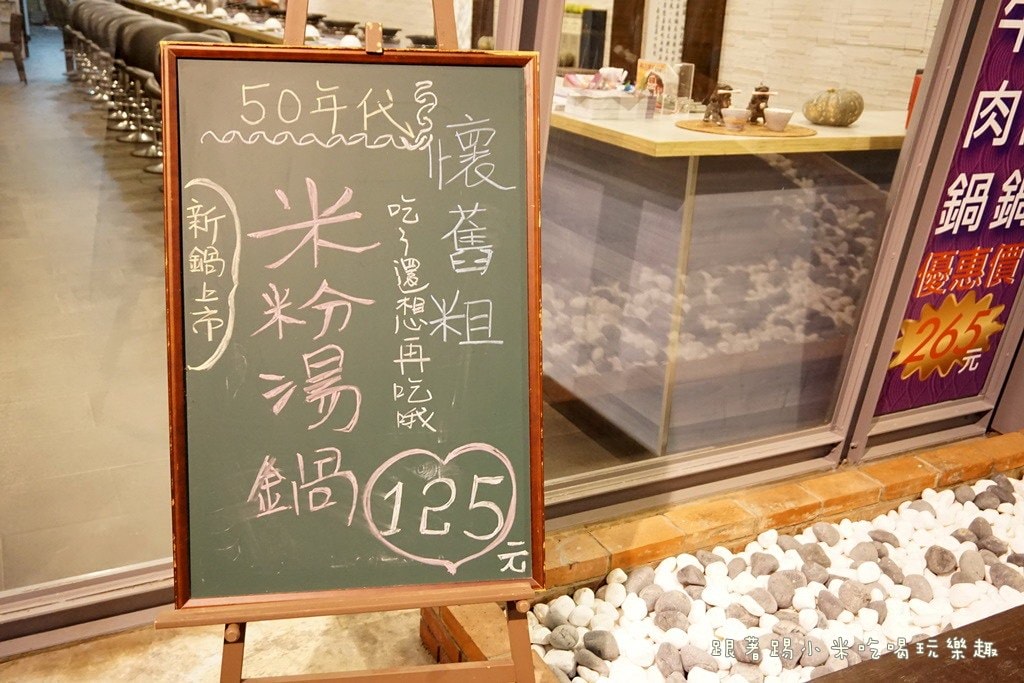 50年代
懷舊粗
米粉湯鍋
吃ㄋ還想再吃哦
新鍋上市
125元
牛肉鍋
鍋
優惠價
265元
跟著踢小米吃喝玩樂趣